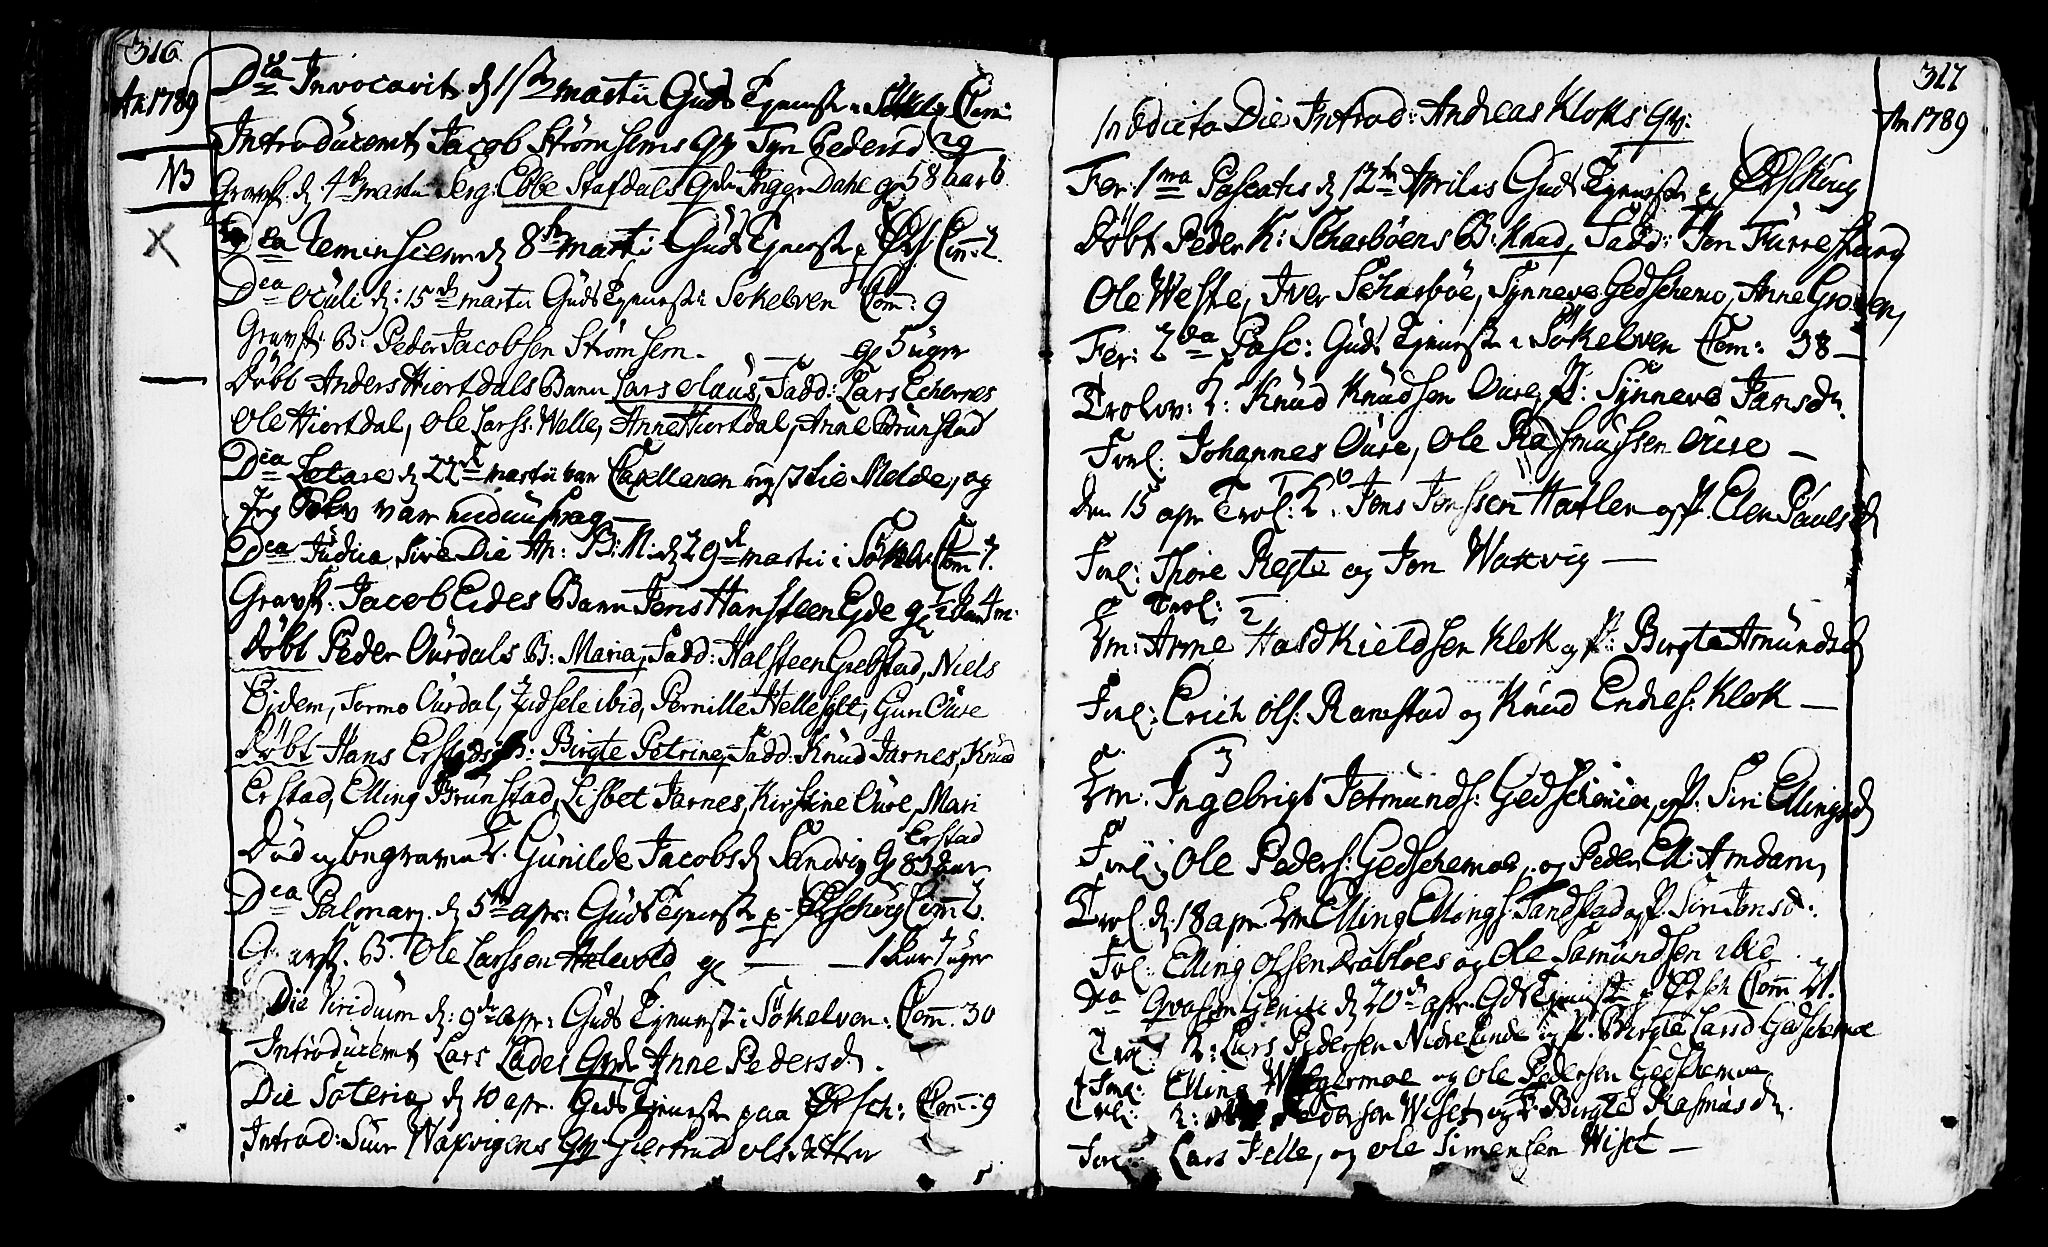 316
An 1789
Dca Invocavit d 1ste martii Guds Tjeneste i Søkelv Com:
Introducent Jacob Strømsems Qv Syn Pedersd 29
NB
Gravf. d 4de martii Serg: Ebbe Stafdals Qde Inger Dahl g 58 aar 6
X
Dca Reminiscere d 8de martii Guds Tjeneste p Ørsk Com: 2.
Dca Oculi d: 15de martii Guds Tjeneste i Søkelven Com: 9
Gravf: B: Peder Jacobsen Strømsem - g 5 uger
Døbt Anders Hiortdals Barn Lars Olaus, Fadd: Lars Ekernes
Ole Hiortdal, Ole Larss: Welle, Anne Hiortdal, Anne Brunstad
Dca Lætare d 22de martii var Capellanen syg i Melde, og
jeg var
Dca Judica sive Die An: B: M: d 29de martii i Søkelv Com 7.
Gravf: Jacob Eides Barn Jens Hansteen Ejde g 1/2 Aar 4 m.
Døbt Peder Aurdals B: Maria, Fadd: Halsteen Grebstad, Niels
Eidem, Tormo Aurdal, Zidsele ibid, Pernille Hellesylt, Gun Aure
Døbt Hans Erstads B: Birgte Petrine, Fadd: Knud Jarnes, Knud
Erstad, Elling Brunstad, Lisbet Jarnes, Kirstine Aure, Mari
Erstad
Død og begraven Gunilde Jacobsd Sandvig g 83 aar
Dca Palmar. d 5te apr: Guds Tjeneste p Ørschoug Com 2.
Gravf. B. Ole Larssen g - 1 Aar 7 uger
Die Viridium d: 9de apr: Guds Tjeneste i Søkelven: Com. 30
Introducent Lars Lades Qvde Anne Pedersd.
Die Soteria d 10 apr. Guds Tjeneste paa Ørsch: Com: 9
Introd: Siur Waxvigens Qv Giertrud Olsdatter
317
An 1789
In edicta Die Introd: Andreas Kloks Qv.
Fer: 1ma Pascatis d 12te Aprilis Guds Tjeneste p Ørskoug
Døbt Peder K: Scharbøens B: Knud, Fadd: Jon Furrestrand
Ole Weste, Iver Scharbøe, Synneve Gedschemo, Anne Groven,
Fer: 2da Pasc: Guds Tjeneste i Søkelven Com: 38 -
Trolov: E: Knud Knudsen Aure, P: Synneve Jansd.
Forl. Johannes Aure, Ole Rasmussen Aure -
den 15 apr Trol: E. Jens Jenssen Hatlen og P. Elen Paulsd
Forl: Thore Regte og Jon Waxvig -
Trol: 2
Em: Arne Hasdkieldsen Klok og P: Birgte Amundsd
Forl: Erich Ols: Ramstad og Knud Endres: Klok -
3
Em: Ingebrigt Jetmunds: Gedschemoe, og P: Siri Ellingsd
Forl: Ole Peders: Gedschemoe, og Peder Ell: Amdam,
Trol. d. 18 apr Em Elling Ellings. Tandstad og P. Siri Jonsd.
Forl: Elling Olsen Drabløes og Ole Samundsen ibid
Dca Qvasim Geniti d 20de apr. Gds Tjeneste p Ørsch Com 21.
Trol: E: Lars Pedersen Nedre Linde og P. Birgte Larsd Gedschemoe
Forl: Elling og Ole Pedersen Gedschemoe
Trol: E: Pedersen Wiset og P: Birgte Rasmusd
Forl: Lars Felle, og Ole Simensen Wiset -